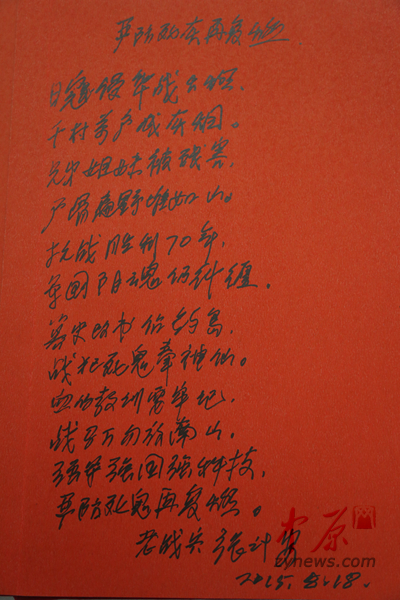 严防死灰再复燃
日寇侵华战火燃，
千村万户成灰烟。
兄弟姐妹被残害，
尸骨遍野堆如山。
抗战胜利70年，
军国阴魂仍纠缠。
篡史改书占钓岛，
战犯死鬼奉神仙。
血的教训要牢记，
战刀万勿放南山。
强军强国强科技，
严防死鬼再复燃。
老战兵 张计
2015.8.18.
中原
zynews.com